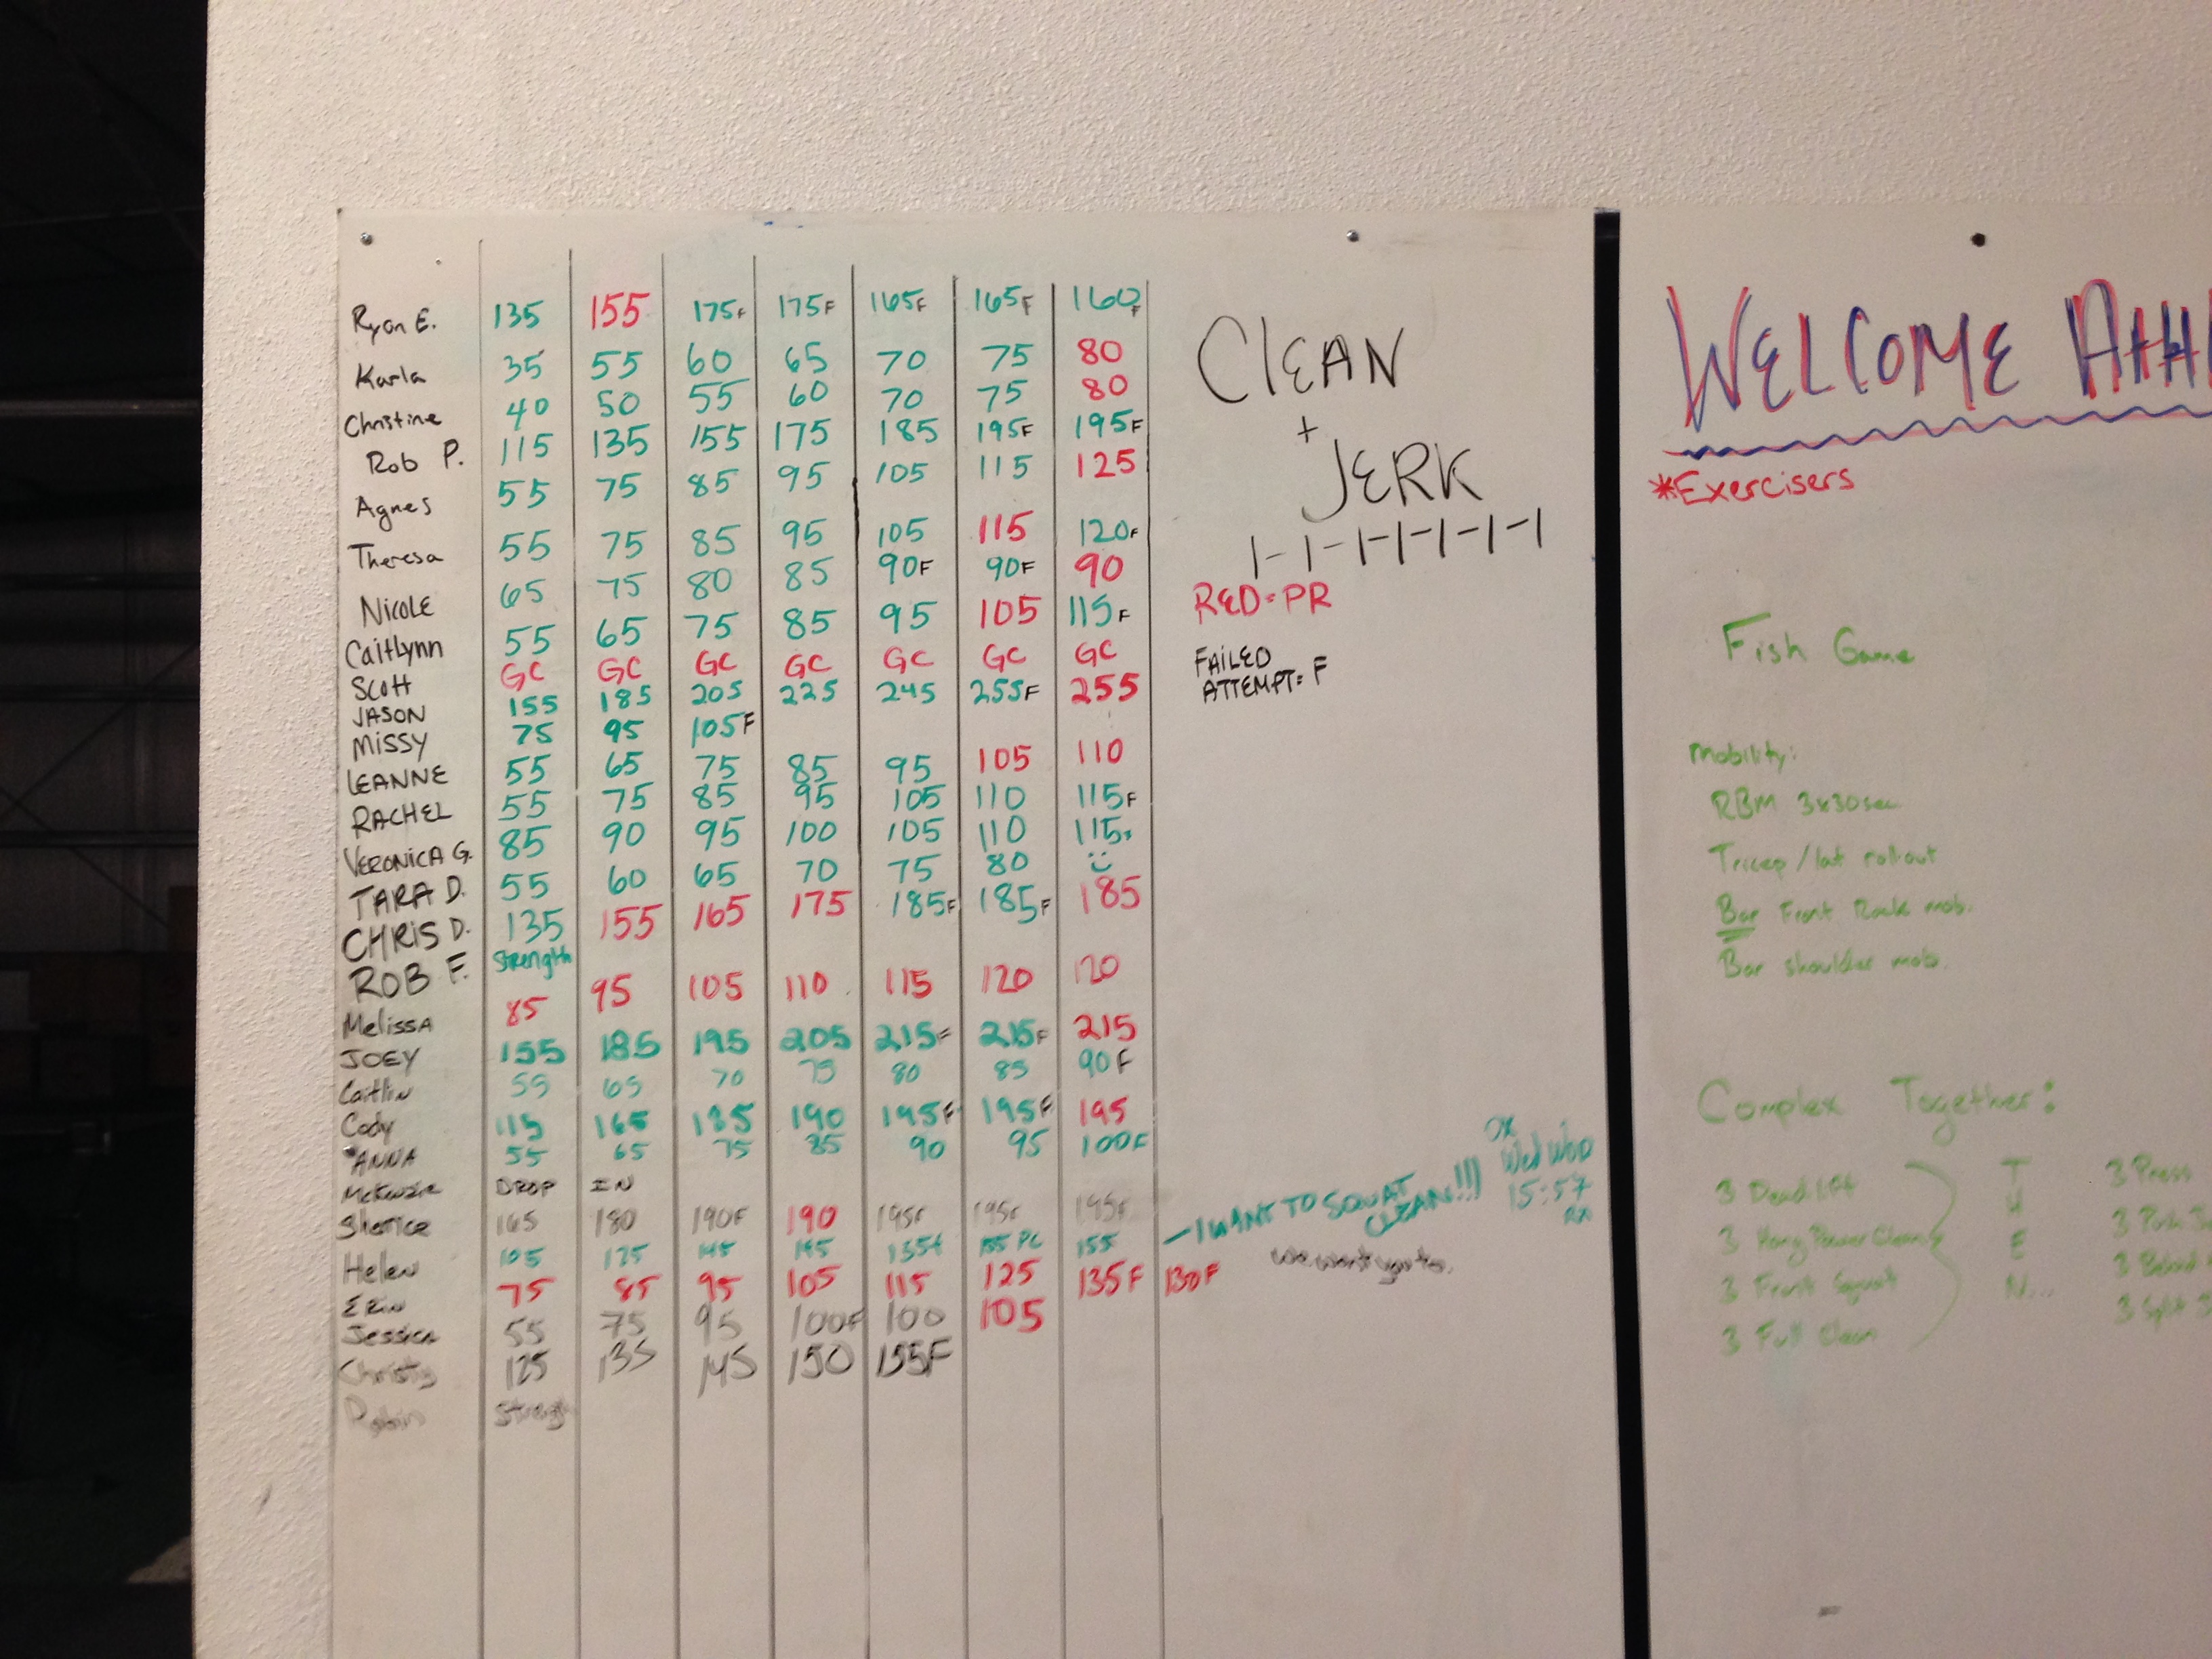 Ryan E. 135 155 175F 175F 165F 165F 160F
Karla 35 55 60 65 70 75 80
Christine 40 50 55 60 70 75 80
Rob P. 115 135 155 175 185 195F 195F
Agnes 55 75 85 95 105 115 125
Theresa 55 75 85 95 105 115 120F
Nicole 65 75 80 85 90F 90F 90
Caitlynn 55 65 75 85 95 105 115F
Scott GC GC GC GC GC GC GC
JASON 155 185 205 225 245 255F 255
Missy 75 95 105F
LEANNE 55 65 75 85 95 105 110
RACHEL 55 75 85 95 105 110 115F
VERONICA G. 85 90 95 100 105 110 115
TARA D. 55 60 65 70 75 80
CHRIS D. 135 155 165 175 185F 185F 185
ROB F. Strength
Melissa 85 95 105 110 115 120 120
JOEY 155 185 195 205 215F 215F 215
Caitlin 55 65 70 75 80 85 90F
Cody 115 165 185 190 195F 195F 195
*ANNA 55 65 75 85 90 95 100F
McKenzie DROP IN
Sherice 165 180 190F 190 195F 195F 195F
Helen 105 125 145 145 155 PC 155
ERIN 75 85 95 105 115 125 135F 130F
Jessica 55 75 95 100F 100 105
Christy 125 135 145 150 155F
Robin
CLEAN
+
JERK
1-1-1-1-1-1-1
RED=PR
FAILED
ATTEMPT= F
- I WANT TO SQUAT
CLEAN!!!
we want you to.
Wed WOD
15:57
RX
WELCOME
*Exercisers
Fish Game
Mobility:
RBM 3x30sec
Tricep/lat rollout
Bar Front Rack mob.
Bar shoulder mob.
Complex Together:
3 Deadlift
3 Hang Power Clean
3 Front Squat
3 Full Clean
T
H
E
N...
3 Press
3 Push
3 Behind
3 Split